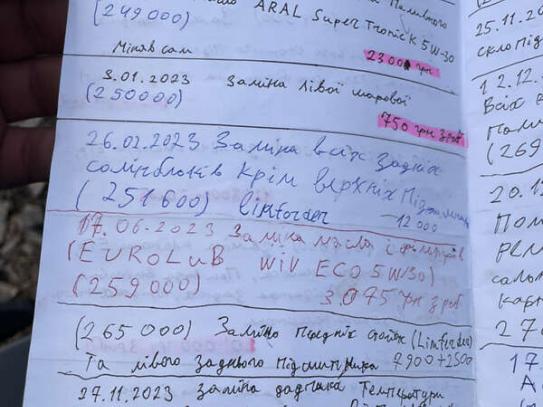 Паливного
(249000) ARAL SuperTronic K 5W-30
Міняв сам 2300 грн
3.01.2023 Заміна лівої шарової
(250000) 750 грн з роб
26.02.2023 Заміна всіх задніх
салінблоків крім верхніх
(251600) limforder 12 000
17.06.2023 Заміна масла і фільтрів
(EUROLUB WIV ECO 5W30)
(259000) 3.075 грн з роб
(265000) Заміна передніх стійок (Limforder)
Та лівого заднього підшипника 7900+2500
27.11.2023 Заміна датчика температури
25.11.20
12.12.
Всіх
(269
20.12
27
17.